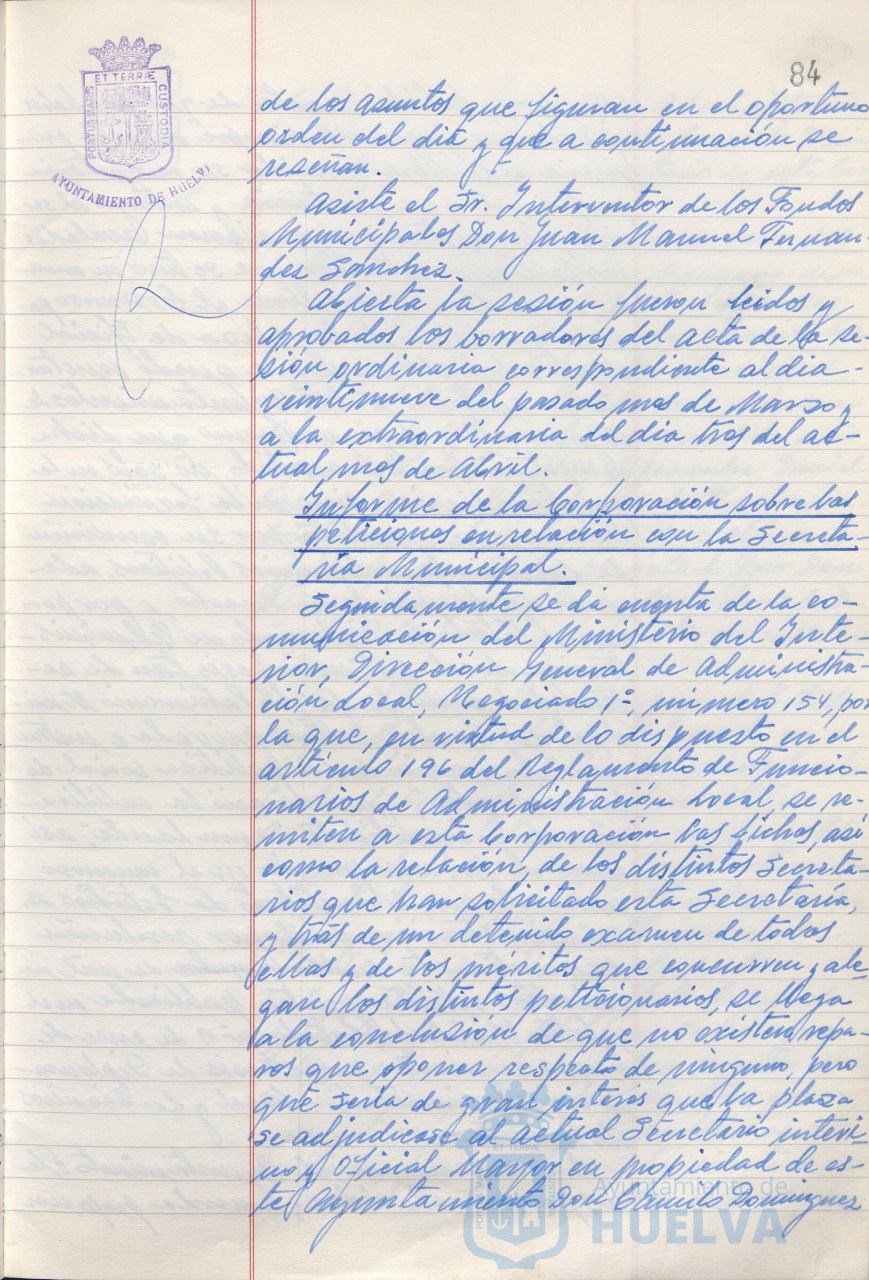 84
ET TERRÆ
PORTUS MARIS
CUSTODIA
AYUNTAMIENTO DE HUELVA
de los asuntos que figuran en el oportuno
orden del dia y que a continuación se
reseñan.
Asiste el Sr. Interventor de los Fondos
Municipales Don Juan Manuel Fernan-
dez Sanchez.
Abierta la sesión fueron leidos y
aprobados los borradores del acta de la se-
sión ordinaria correspondiente al dia
veintinueve del pasado mes de Marzo y
a la extraordinaria del dia tres del ac-
tual mes de Abril.
Informe de la Corporación sobre las
peticiones en relación con la Secreta-
ria Municipal.
Seguidamente se dá cuenta de la co-
municación del Ministerio del Inte-
rior, Dirección General de Administra-
ción Local, Negociado 1º, número 154, por
la que, en virtud de lo dispuesto en el
artículo 196 del Reglamento de Funcio-
narios de Administración Local, se re-
miten a esta Corporación las fichas, así
como la relación, de los distintos Secreta-
rios que han solicitado esta Secretaría,
y trás de un detenido examen de todos
ellas y de los méritos que concurren y ale-
gan los distintos peticionarios, se llega
a la conclusión de que no existen repa-
ros que oponer respecto de ninguno, pero
que sería de gran interés que la plaza
se adjudicase al actual Secretario interi-
no y Oficial Mayor en propiedad de es-
te Ayuntamiento Don Camilo Dominguez
ET TERRÆ
Ayuntamiento de
HUELVA